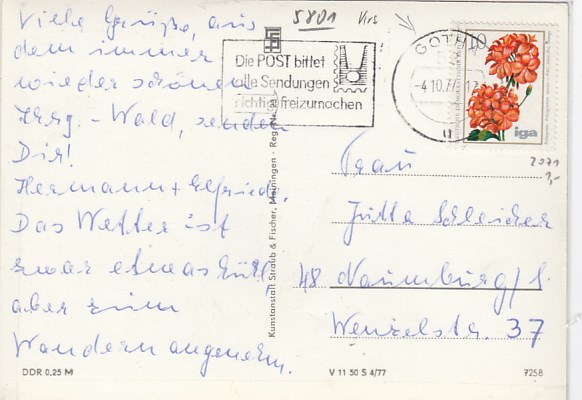 Viele Grüße, aus
dem immer
wieder schönen
Thrg. - Wald, senden
Dir!
Hermann + Elfriede.
Das Wetter ist
zwar etwas kühl,
aber zum
Wandern angenehm.
DDR 0,25 M
Kunstanstalt Straub & Fischer, Meiningen
5801
Die POST bittet
alle Sendungen
richtig freizumachen
GOTHA
-4.10.77
10
iga
2071
Frau
Jutta Schleicher
48 Naumburg/S.
Wenzelstr. 37
V 11 50 S 4/77
7258